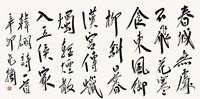 春城無處
不飛花寒
食東風御
柳斜日暮
漢宮傳蠟
燭輕煙散
入五侯家
韓翃詩一首